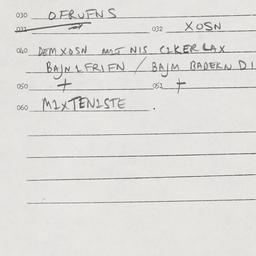 030 OFRUFNS
031 032 XOSN
040 DEMXOSN MJ NIS CLKER LAX
BAJNLFRIFN / BAJM BADEKN DI
050 + 051 +
060 MIXTENISTE .